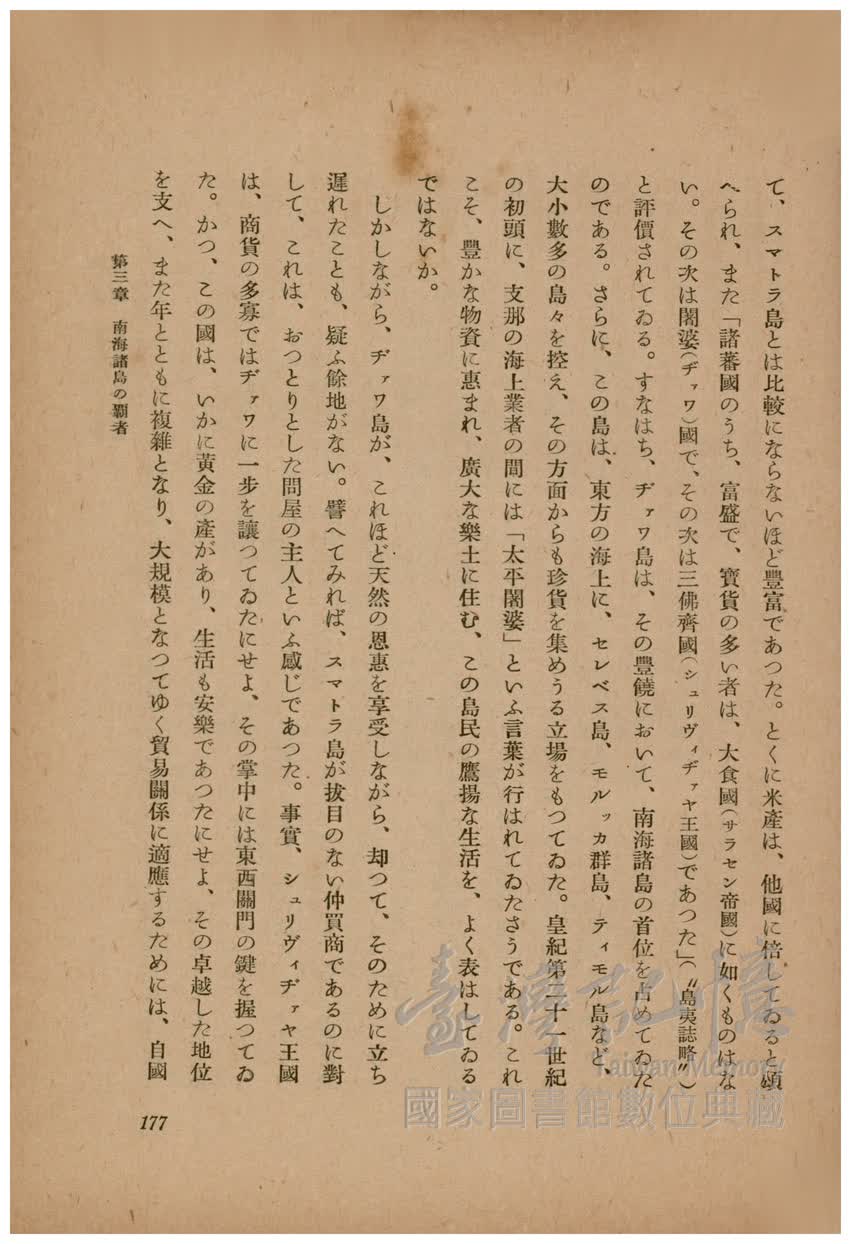 て、スマトラ島とは比較にならないほど豐富であつた。とくに米產は、他國に倍してゐると頌
へられ、また「諸蕃國のうち、富盛で、寶貨の多い者は、大食國(サラセン帝國)に如くものはな
い。その次は闍婆(ヂァワ)國で、その次は三佛齊國(シュリヴィヂァヤ王國)であつた」(〝島夷誌略〟)
と評價されてゐる。すなはち、ヂァワ島は、その豐饒において、南海諸島の首位を占めてゐた
のである。さらに、この島は、東方の海上に、セレベス島、モルッカ群島、ティモル島など、
大小數多の島々を控え、その方面からも珍貨を集めうる立場をもつてゐた。皇紀第二十一世紀
の初頭に、支那の海上業者の間には「太平闍婆」といふ言葉が行はれてゐたさうである。これ
こそ、豐かな物資に惠まれ、廣大な樂土に住む、この島民の鷹揚な生活を、よく表はしてゐる
ではないか。
しかしながら、ヂァワ島が、これほど天然の恩惠を享受しながら、却つて、そのために立ち
遲れたことも、疑ふ餘地がない。譬へてみれば、スマトラ島が拔目のない仲買商であるのに對
して、これは、おつとりとした問屋の主人といふ感じであつた。事實、シュリヴィヂァヤ王國
は、商貨の多寡ではヂァワに一步を讓つてゐたにせよ、その掌中には東西關門の鍵を握つてゐ
た。かつ、この國は、いかに黃金の產があり、生活も安樂であつたにせよ、その卓越した地位
を支へ、また年とともに複雜となり、大規模となつてゆく貿易關係に適應するためには、自國
第三章 南海諸島の覇者
177
臺灣記憶
Taiwan Memory
國家圖書館數位典藏